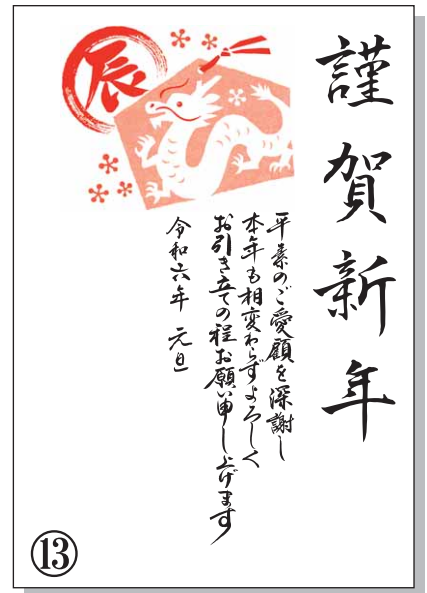 謹賀新年
辰
平素のご愛顧を深謝し
本年も相変わらずよろしく
お引き立ての程お願い申し上げます
令和六年 元旦
⑬